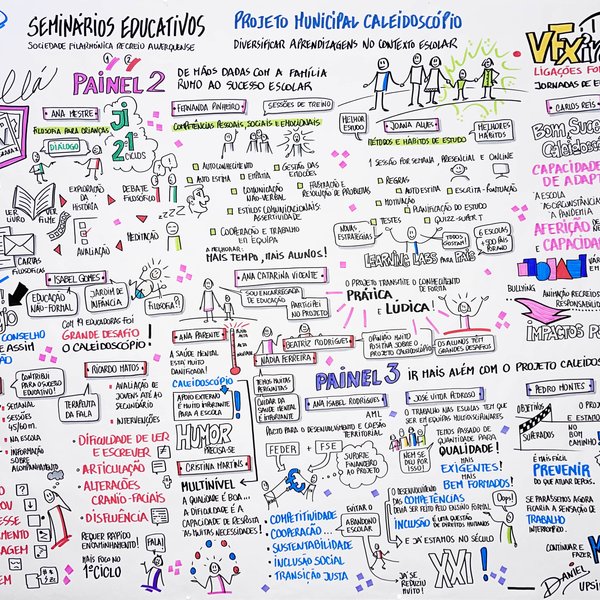 SEMINÁRIOS EDUCATIVOS
SOCIEDADE FILARMÓNICA RECREIO ALVERQUENSE
PROJETO MUNICIPAL CALEIDOSCÓPIO
DIVERSIFICAR APRENDIZAGENS NO CONTEXTO ESCOLAR
PAINEL 2
DE MÃOS DADAS COM A FAMÍLIA
RUMO AO SUCESSO ESCOLAR
ANA MESTRE
FILOSOFIA PARA CRIANÇAS
DIÁLOGO
JI
2º 1º
CICLOS
LER
LIVRO
VER
FILME
EXPLORAÇÃO
DA
HISTÓRIA
DEBATE
FILOSÓFICO
AVALIAÇÃO
MEDITAÇÃO
ZZZ
CARTAS
FILOSÓFICAS
FERNANDA PINHEIRO
SESSÕES DE TREINO
COMPETÊNCIAS PESSOAIS, SOCIAIS E EMOCIONAIS
AUTOCONHECIMENTO
AUTO ESTIMA
EMPATIA
GESTÃO DAS
EMOÇÕES
COMUNICAÇÃO
NÃO-VERBAL
HABITUAÇÃO E
RESOLUÇÃO DE PROBLEMAS
ESTILOS COMUNICACIONAIS:
ASSERTIVIDADE
COOPERAÇÃO E TRABALHO
EM EQUIPA
A MELHORAR:
MAIS TEMPO, MAIS ALUNOS!
MELHOR
ESTUDO
JOANA ALVES
MELHORES
HÁBITOS
MÉTODOS E HÁBITOS DE ESTUDO
1 SESSÃO POR SEMANA, PRESENCIAL E ONLINE
REGRAS
AUTO ESTIMA
ESCRITA-PONTUAÇÃO
MOTIVAÇÃO
PLANIFICAÇÃO DO ESTUDO
TESTES
QUIZZ-SUPER T
NOVAS
ESTRATÉGIAS
TODOS
GOSTAM!
6 ESCOLAS
LEARNING LABS PARA PAIS
VFX
LIGAÇÕES
JORNADAS DE
CARLOS REIS
BOM, SUC
CALEIDOS
CAPACIDADE
DE ADAPT
A ESCOLA
AS CIRCUNSTÂNCIAS
A PANDEMIA
AFERIÇÃO
CAPACIDAD
BULLYING
ANIMAÇÃO RECREIOS
RESPONSABILI
IMPACTOS P
ISABEL GOMES
EDUCAÇÃO
NÃO-FORMAL
JARDIM DE
INFÂNCIA
FILOSOFIA?
COM 19 EDUCADORAS FOI
GRANDE DESAFIO
O CALEIDOSCÓPIO!
CONSELHO
E ASSIM
ANA CATARINA VICENTE
SOU ENCARREGADA
DE EDUCAÇÃO
PARTICIPEI
NO PROJETO
O PROJETO TRANSMITE O CONHECIMENTO
DE FORMA
PRÁTICA
E LÚDICA!
BEATRIZ RODRIGUES
OPINIÃO MUITO
POSITIVA SOBRE O
PROJETO CALEIDOSCÓPIO
OS ALUNOS TÊM
GRANDES DESAFIOS
RICARDO MATOS
CONTRIBUI
PARA O SUCESSO
EDUCATIVO!
TERAPEUTA
DA FALA
AVALIAÇÃO DE
JOVENS ATÉ AO
SECUNDÁRIO
INTERVENÇÕES
SEMANAL
SESSÕES
45/60 m.
NA ESCOLA
INFORMAÇÃO
SOBRE
ACOMPANHAMENTO
DIFICULDADE DE LER
E ESCREVER
ARTICULAÇÃO
ALTERAÇÕES
CRANIO-FACIAIS
DISFLUÊNCIA
REQUER RÁPIDO
ENCAMINHAMENTO!
FALA!
MAIS FOCO NO
1º CICLO
ANA PARENTE
A SAÚDE MENTAL
ESTÁ MUITO
DANIFICADA!
CALEIDOSCÓPIO
APOIO EXTERNO
É MUITO IMPORTANTE
PARA A ESCOLA!
HUMOR
PRECISA-SE
CRISTINA MARTINS
MULTINÍVEL
A QUALIDADE É BOA...
A DIFICULDADE É A
CAPACIDADE DE RESPOSTA
ÀS MUITAS NECESSIDADES!
NÁDIA FERREIRA
TEMOS MUITAS
PERGUNTAS
CUIDAR DA
SAÚDE MENTAL
É IMPORTANTE
PAINEL 3
IR MAIS ALÉM COM O PROJETO CALEIDOS
ANA ISABEL RODRIGUES
AML
PACTO PARA O DESENVOLVIMENTO E COESÃO
TERRITORIAL
FEDER
FSE
SUPORTE
FINANCEIRO
AO PROJETO
€
EVITAR O
ABANDONO
ESCOLAR
COMPETITIVIDADE
COOPERAÇÃO...
SUSTENTABILIDADE
INCLUSÃO SOCIAL
TRANSIÇÃO JUSTA
JOSÉ VITOR PEDROSO
O TRABALHO NAS ESCOLAS TEM QUE
SER EM EQUIPAS MULTIDISCIPLINARES
NEM SE
DEU
POR ISSO!
TEMOS PASSADO DE
QUANTIDADE PARA
QUALIDADE!
MAIS
EXIGENTES!
MAIS
BEM FORMADOS!
O DESENVOLVIMENTO
DAS COMPETÊNCIAS
DEVIA SER FEITO PELO ENSINO FORMAL
OOPS!
INCLUSÃO É UMA QUESTÃO
DE DIREITOS HUMANOS
E JÁ ESTAMOS NO SÉCULO
XXI!
JÁ SE
REDUZIU
MUITO!
PEDRO MONTES
OBJETIVOS
SUPERADOS
O PROJ
E ESTADO
NO
BOM
CAMINHO!
É MAIS FÁCIL
PREVENIR
DO QUE ATUAR DEPOIS.
SE PARÁSSEMOS AGORA
FICARIA A SENSAÇÃO DE
TRABALHO
INTERROMPIDO.
CONTINUAR E
FAZER
DANIEL
UPSI